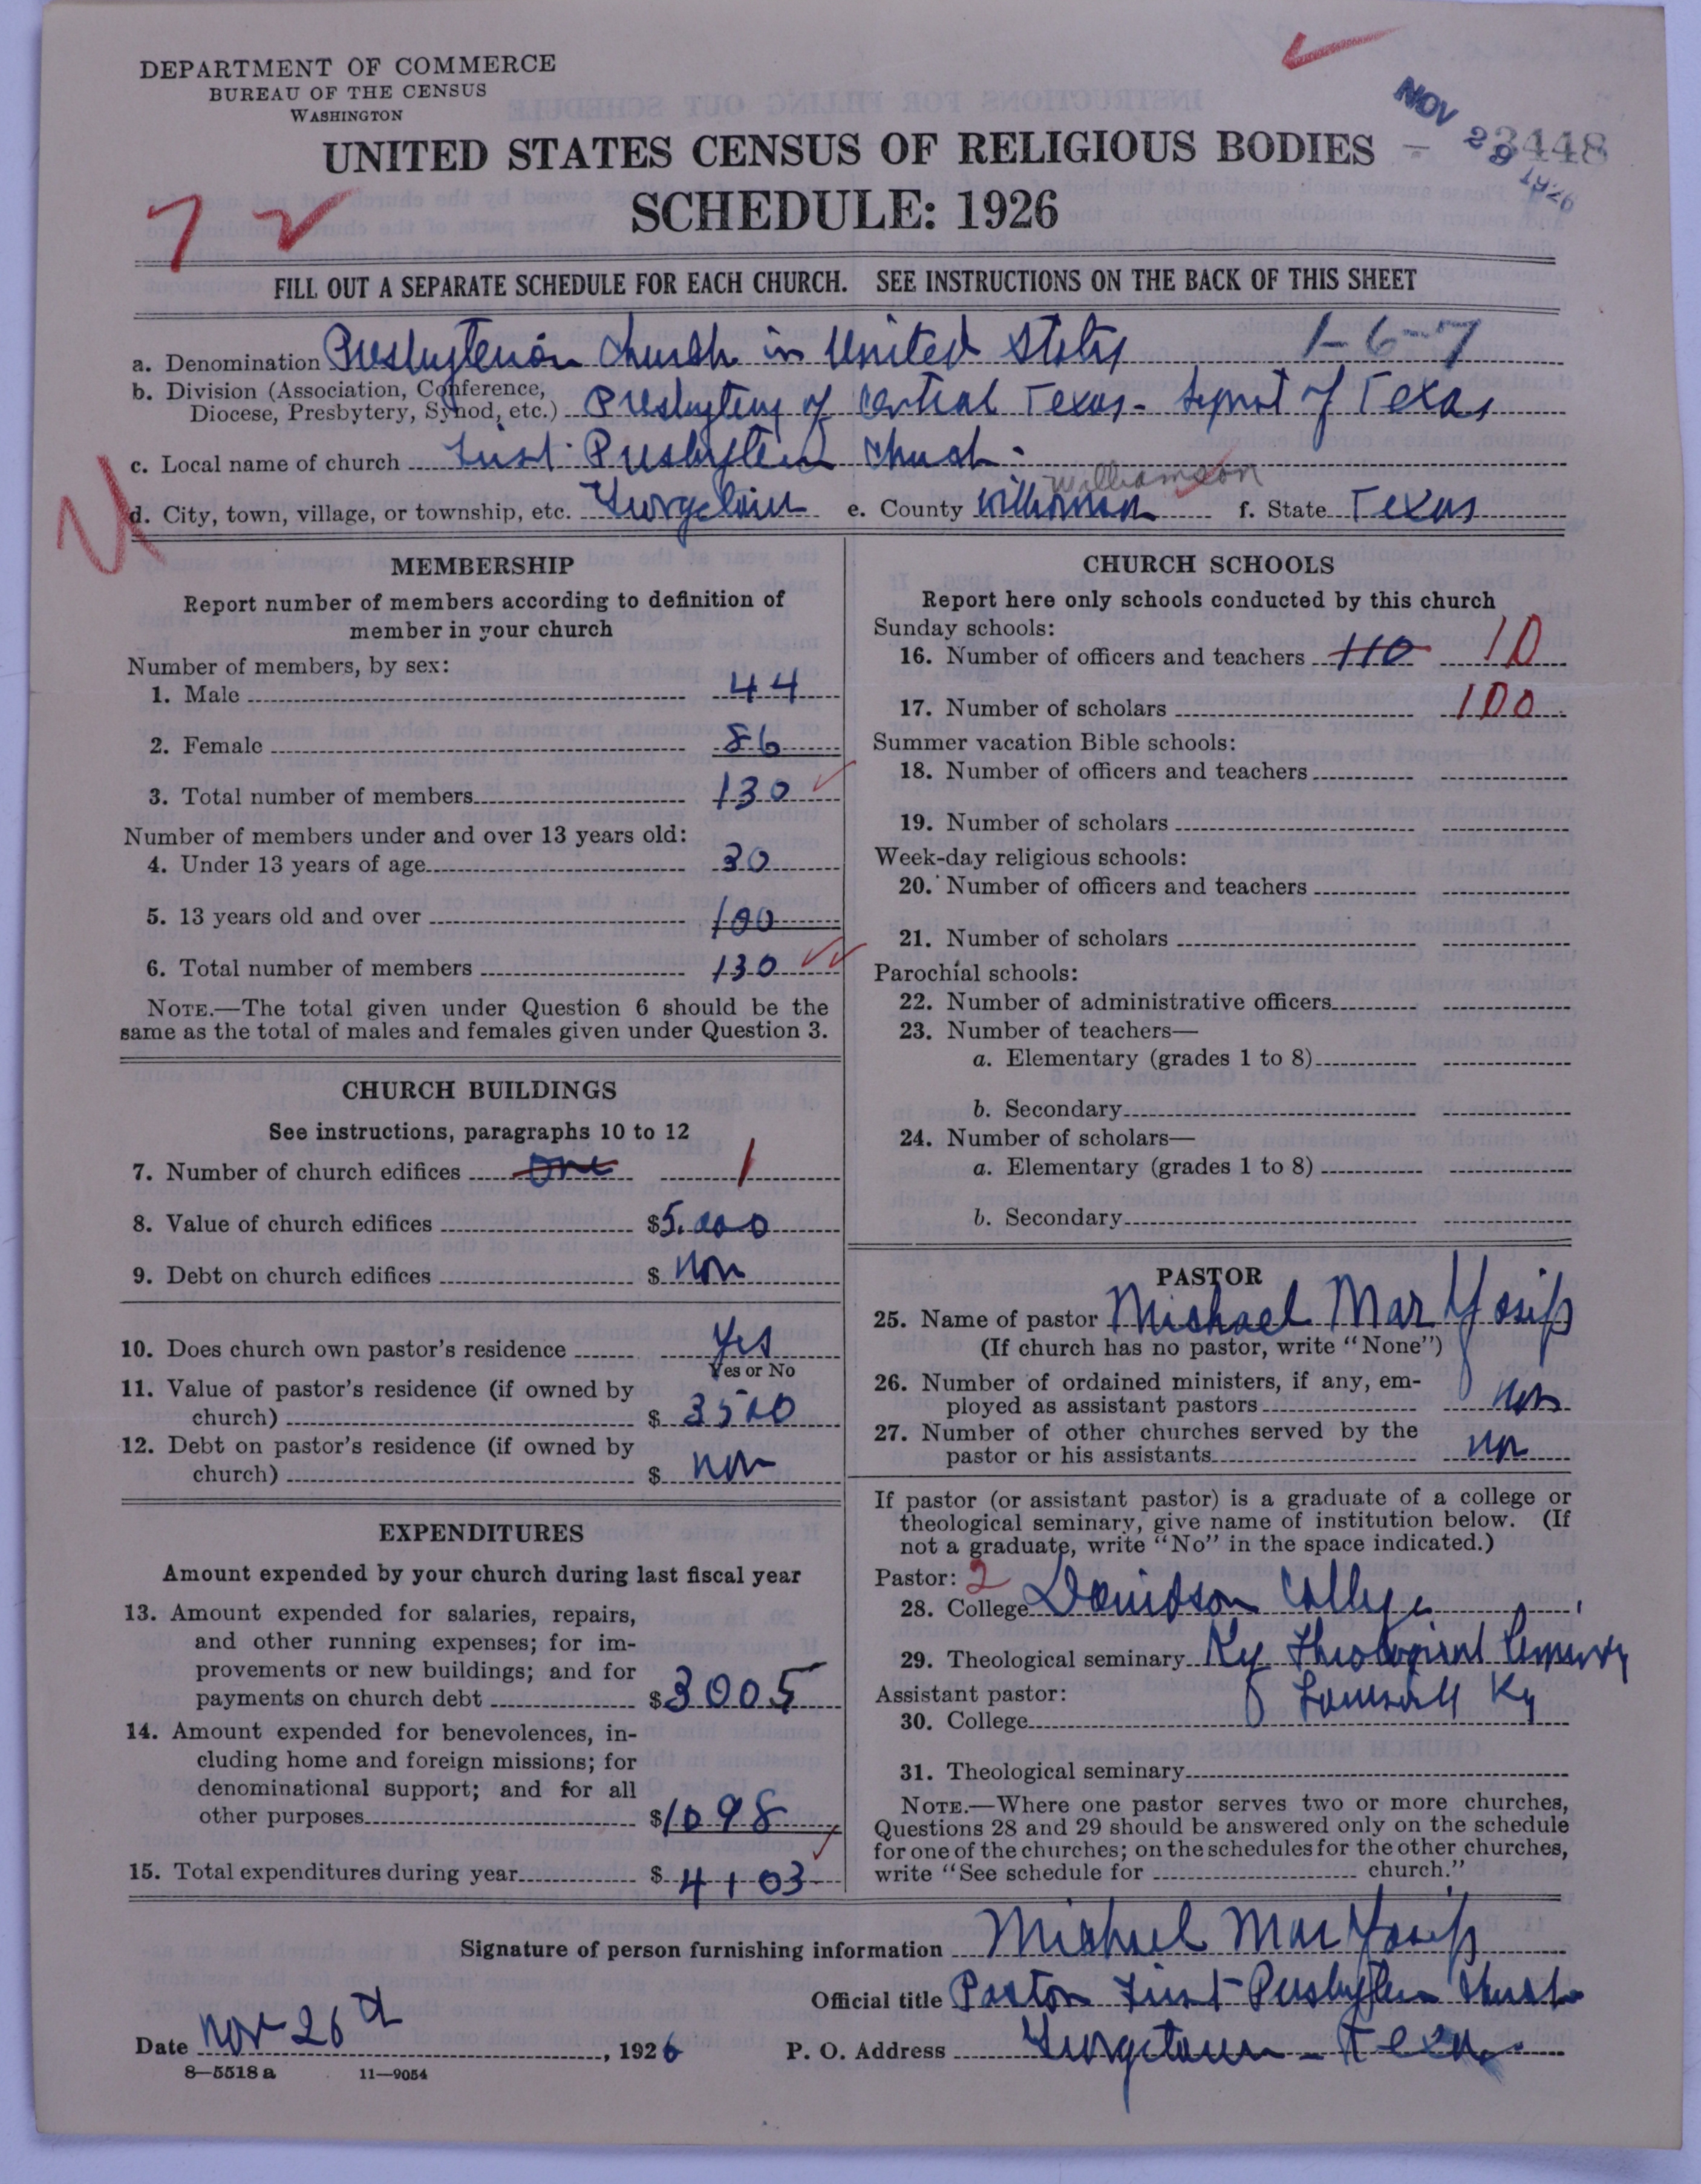 DEPARTMENT OF COMMERCE
BUREAU OF THE CENSUS
WASHINGTON
NOV 29 1926
3448
UNITED STATES CENSUS OF RELIGIOUS BODIES
SCHEDULE: 1926
72
FILL OUT A SEPARATE SCHEDULE FOR EACH CHURCH. SEE INSTRUCTIONS ON THE BACK OF THIS SHEET
a. Denomination Presbyterian Church in United States 1-6-7
b. Division (Association, Conference,
Diocese, Presbytery, Synod, etc.) Presbytery of Central Texas - Synod of Texas
c. Local name of church First Presbyterian Church.
Williamson
d. City, town, village, or township, etc. Georgetown e. County Williamson f. State Texas
MEMBERSHIP
Report number of members according to definition of
member in your church
Number of members, by sex:
1. Male 44
2. Female 86
3. Total number of members 130
Number of members under and over 13 years old:
4. Under 13 years of age 30
5. 13 years old and over 100
6. Total number of members 130
NOTE.—The total given under Question 6 should be the
same as the total of males and females given under Question 3.
CHURCH BUILDINGS
See instructions, paragraphs 10 to 12
7. Number of church edifices One 1
8. Value of church edifices $5.000
9. Debt on church edifices $ Non
10. Does church own pastor's residence Yes
Yes or No
11. Value of pastor's residence (if owned by
church) $ 3500
12. Debt on pastor's residence (if owned by
church) $ Non
EXPENDITURES
Amount expended by your church during last fiscal year
13. Amount expended for salaries, repairs,
and other running expenses; for im-
provements or new buildings; and for
payments on church debt $3005
14. Amount expended for benevolences, in-
cluding home and foreign missions; for
denominational support; and for all
other purposes $1098
15. Total expenditures during year $ 4103
CHURCH SCHOOLS
Report here only schools conducted by this church
Sunday schools:
16. Number of officers and teachers 110 10
17. Number of scholars 100
Summer vacation Bible schools:
18. Number of officers and teachers
19. Number of scholars
Week-day religious schools:
20. Number of officers and teachers
21. Number of scholars
Parochial schools:
22. Number of administrative officers
23. Number of teachers—
a. Elementary (grades 1 to 8)
b. Secondary
24. Number of scholars—
a. Elementary (grades 1 to 8)
b. Secondary
PASTOR
25. Name of pastor Michael Mar Yosip
(If church has no pastor, write "None")
26. Number of ordained ministers, if any, em-
ployed as assistant pastors Non
27. Number of other churches served by the
pastor or his assistants Non
If pastor (or assistant pastor) is a graduate of a college or
theological seminary, give name of institution below. (If
not a graduate, write "No" in the space indicated.)
Pastor: 2
28. College Davidson College
29. Theological seminary Ky Theological Seminary
Assistant pastor: Louisville Ky
30. College
31. Theological seminary
NOTE.—Where one pastor serves two or more churches,
Questions 28 and 29 should be answered only on the schedule
for one of the churches; on the schedules for the other churches,
write "See schedule for church."
Signature of person furnishing information Michael Mar Yosip
Official title Pastor First Presbyterian Church
Date Nov 26th, 1926 P. O. Address Georgetown - Texas
8—5518 a 11—9054